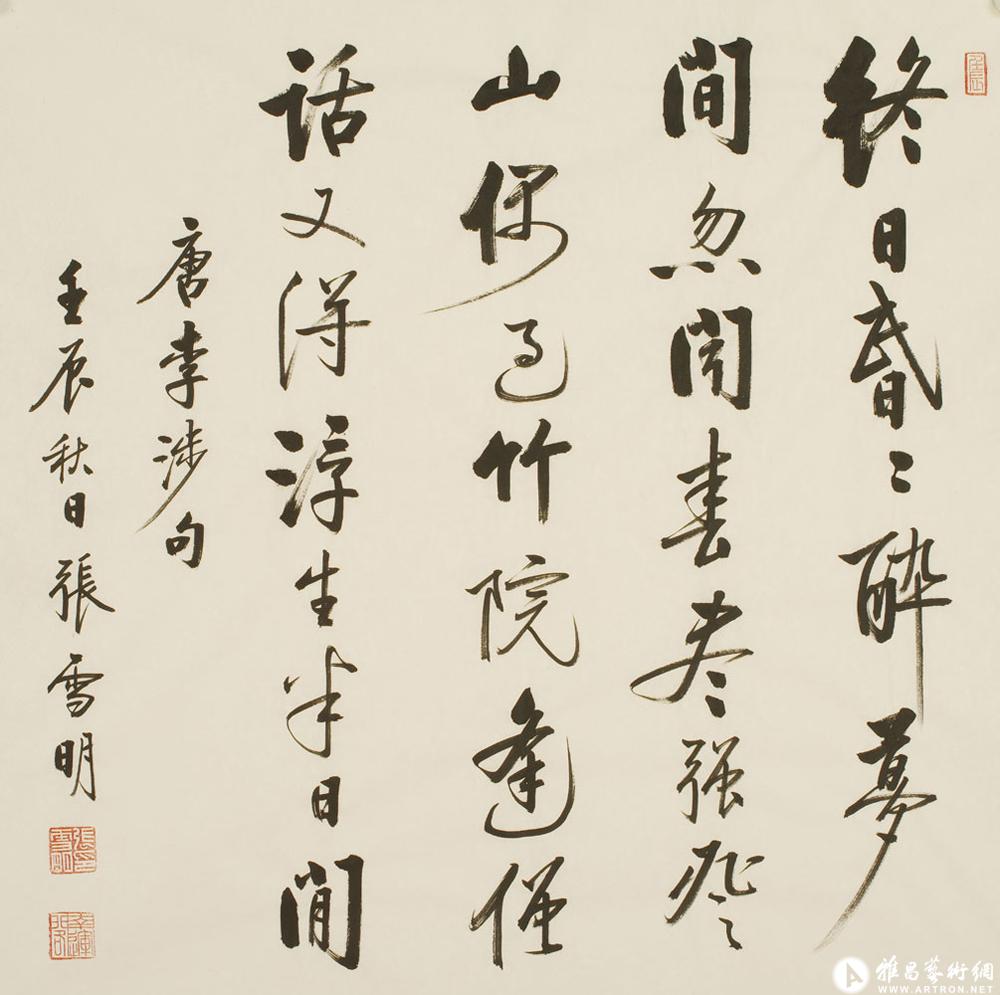 終日昏〻醉夢
間忽聞春尽强登
山偶過竹院逢僧
話又得浮生半日閒
唐李涉句
壬辰秋日張雪明
雅昌藝術網
WWW.ARTRON.NET